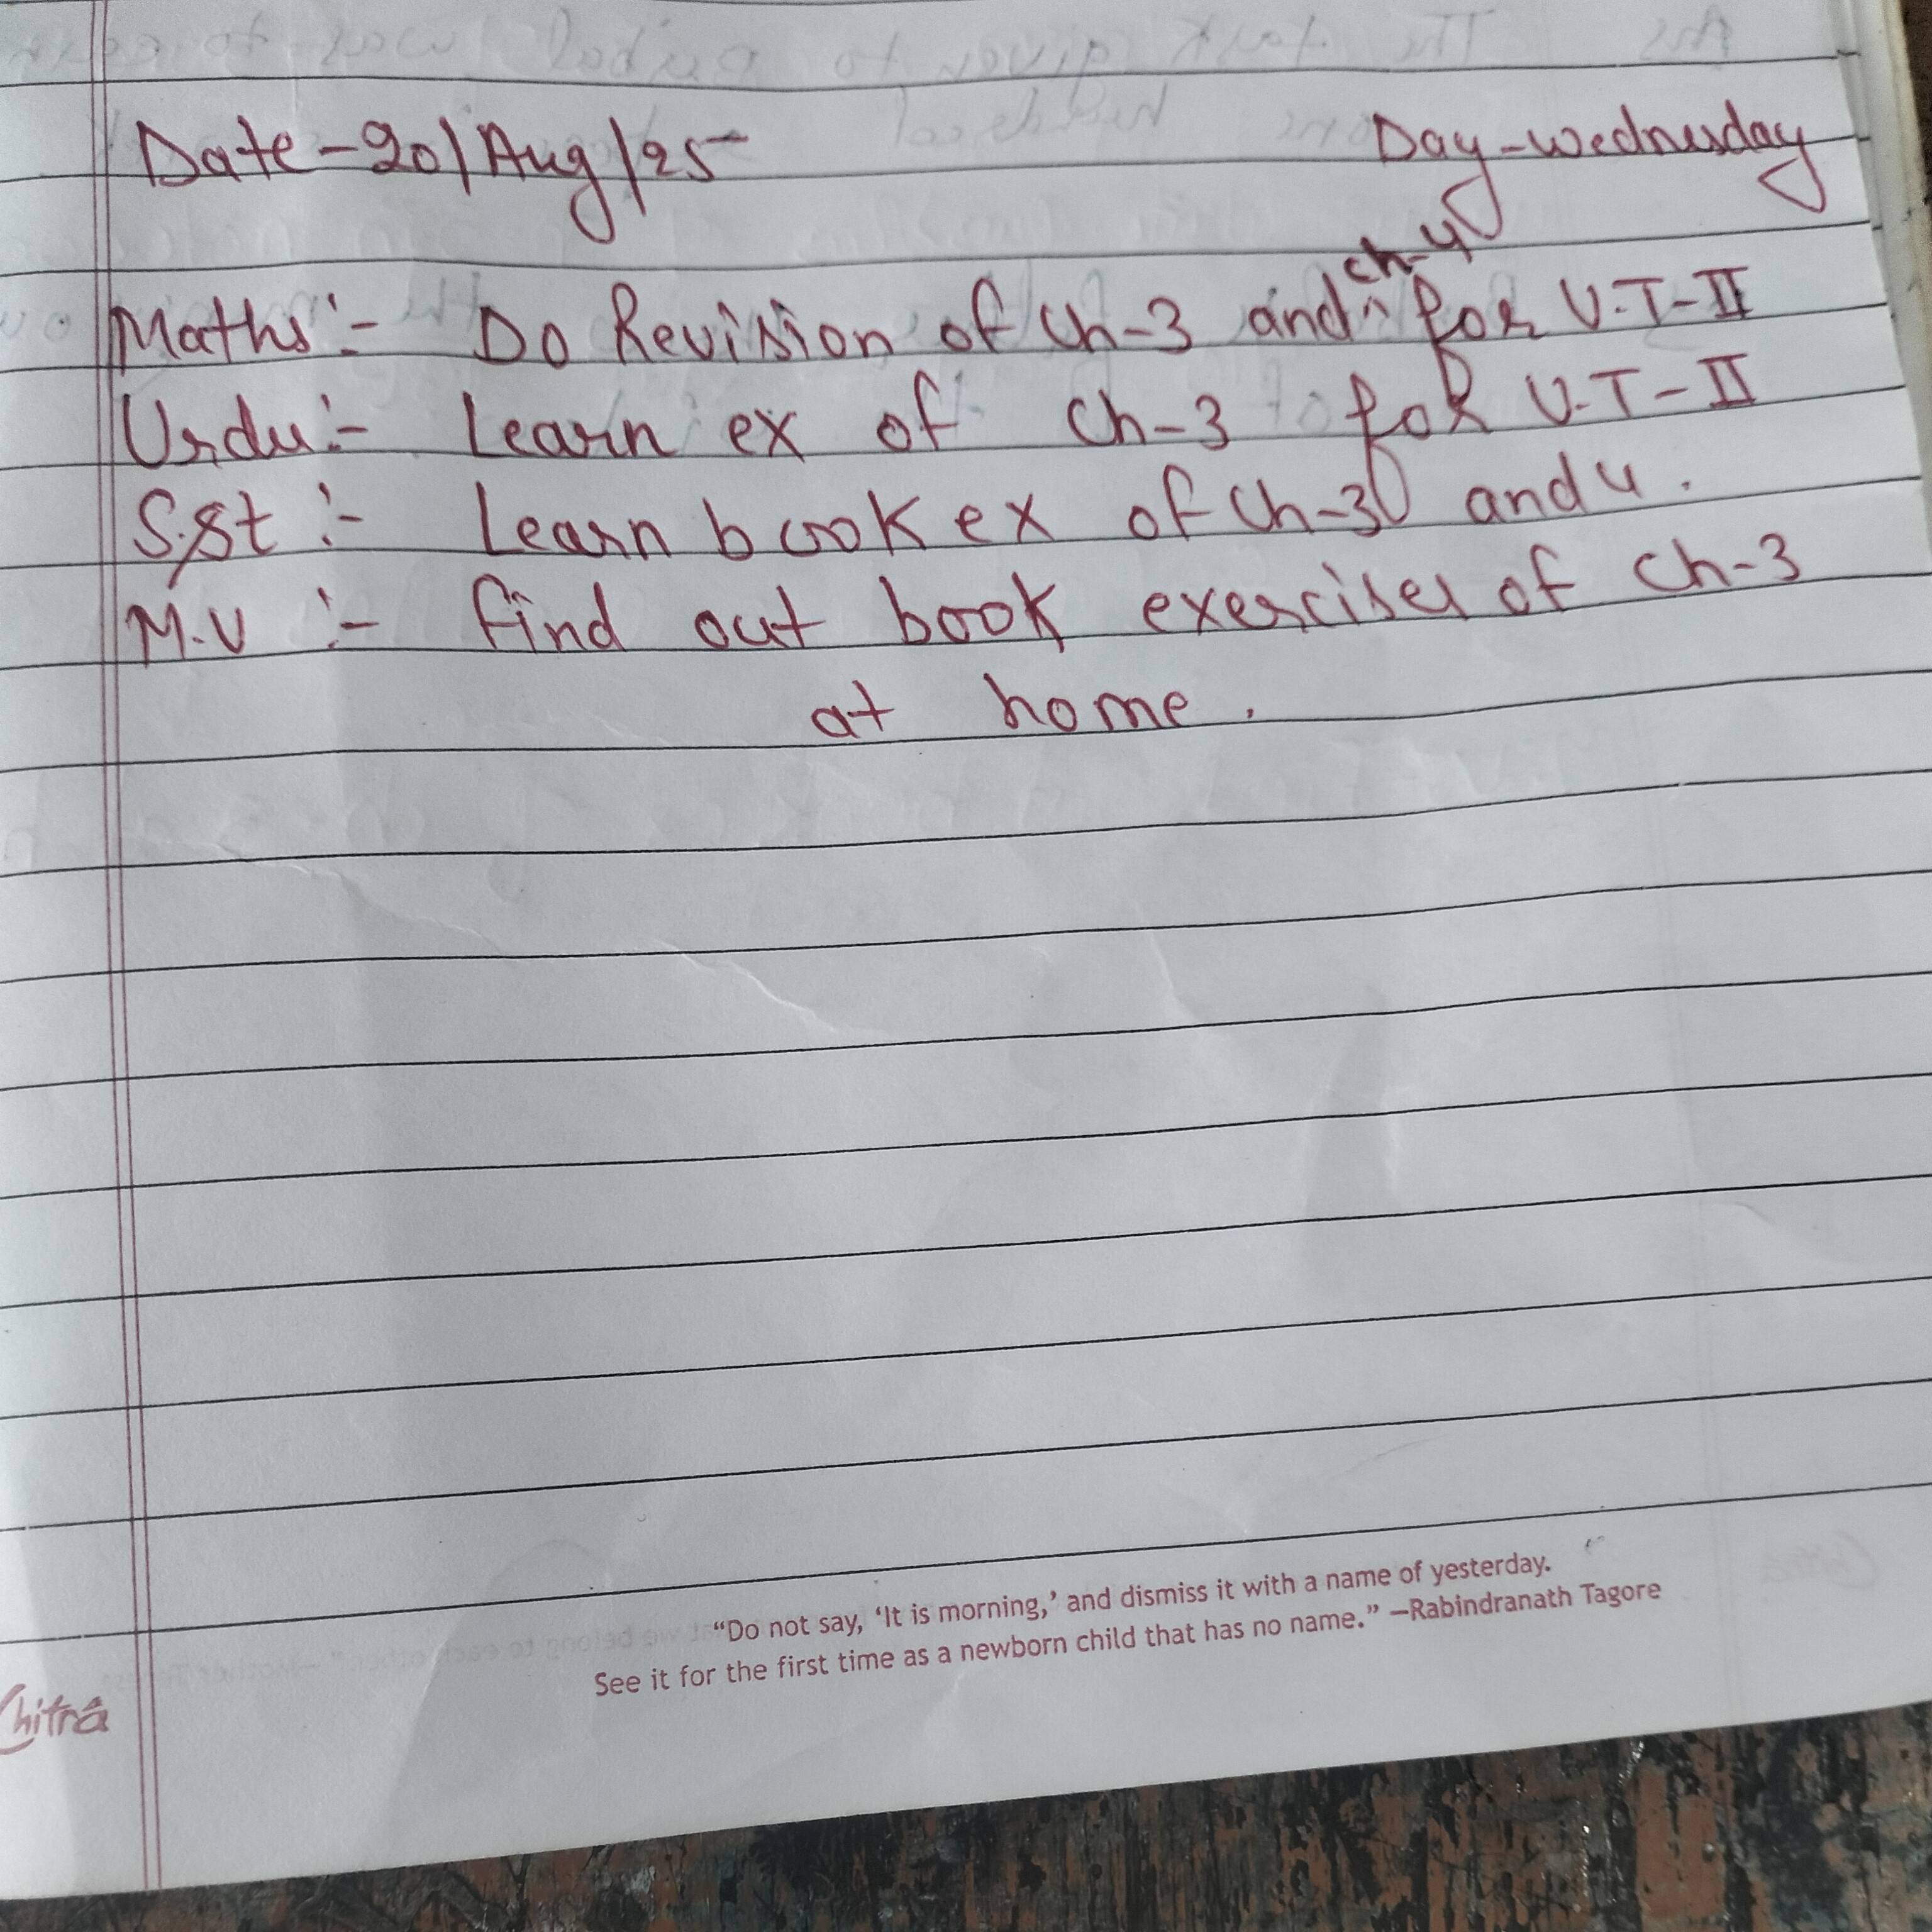 Date - 20/Aug/25 Day - wednesday
Maths :- Do Revision of Ch-3 and ch-4 for U.T-II
Urdu :- Learn ex of Ch-3 for U.T-II
S.st :- Learn book ex of Ch-3 and 4.
M.V :- find out book exercises of Ch-3
at home.
“Do not say, ‘It is morning,’ and dismiss it with a name of yesterday.
See it for the first time as a newborn child that has no name.” —Rabindranath Tagore
Chitra